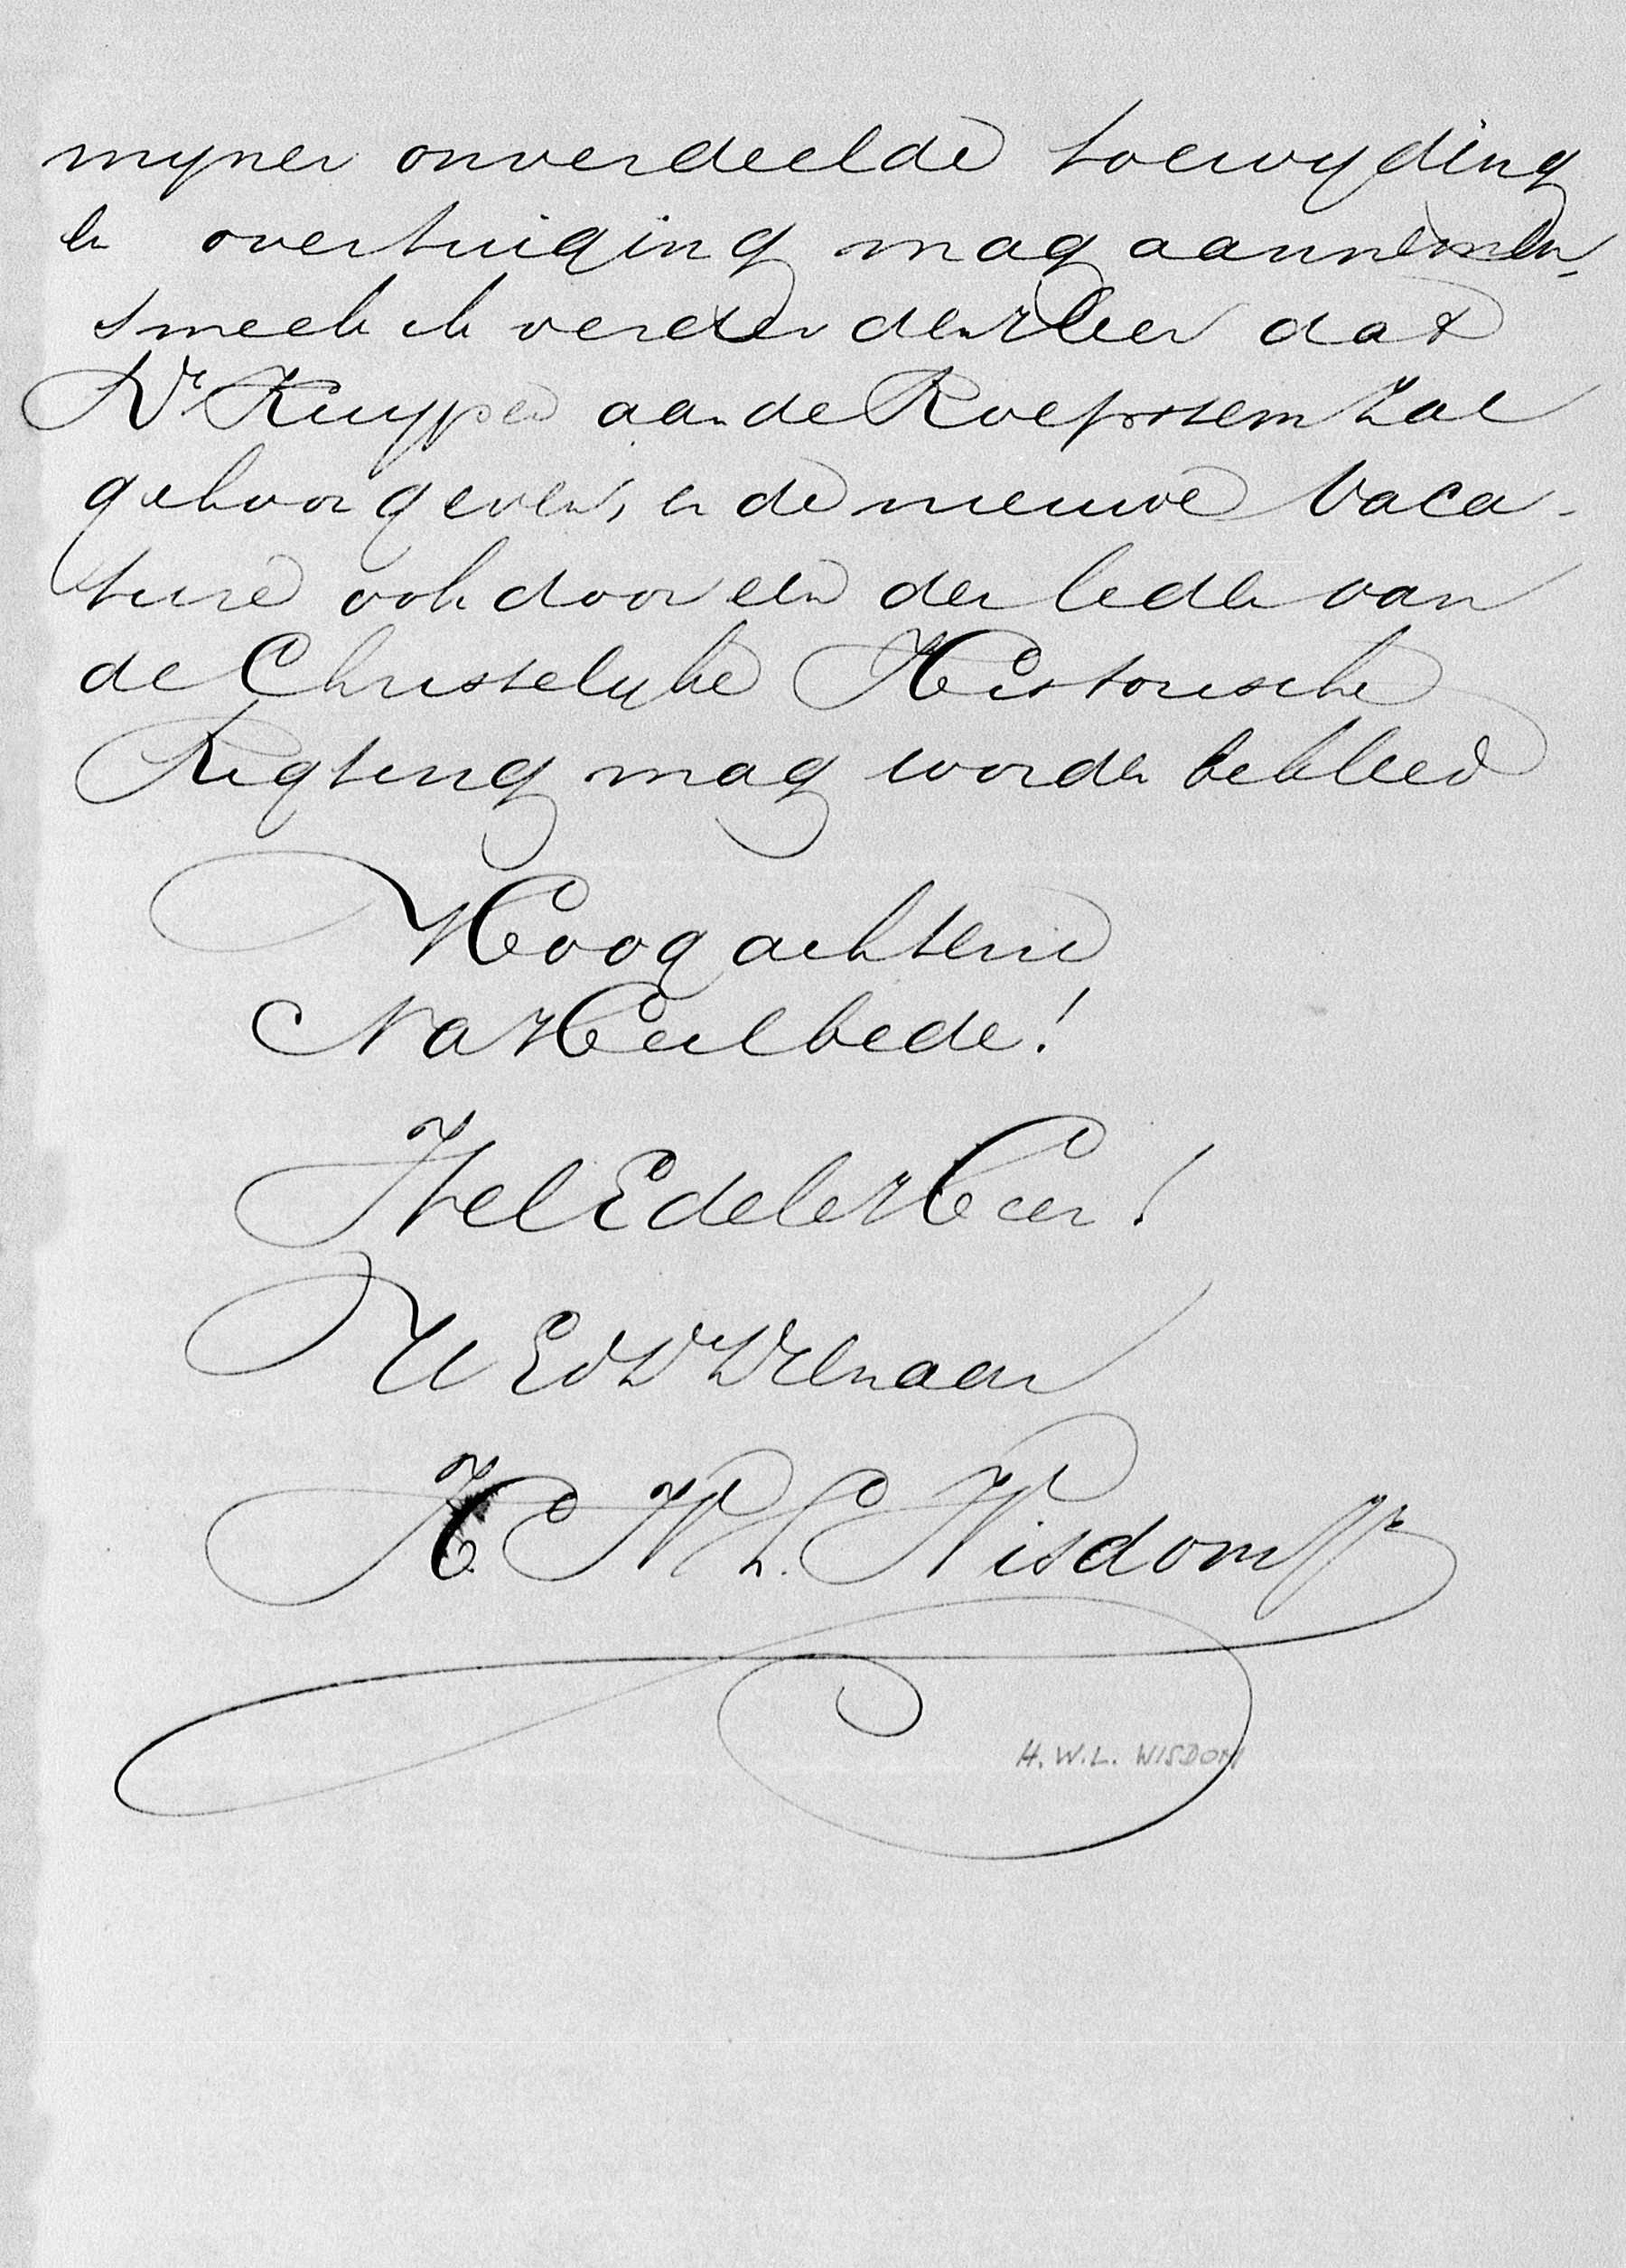 mijner onverdeelde toewijding
en overtuiging mag aannemen,
smeek ik verder den Heer dat
Dr Kuyper aan de Roepstem zal
gehoor geven, en de nieuwe Vaca-
ture ook door een der leden van
de Christelijke Historische
Rigting mag worden bekleed
Hoogachtend
Na Heilbede!
WelEdele Heer!
U Ed Dw Dienaar
H. W. L. Wisdom
H. W. L. WISDOM